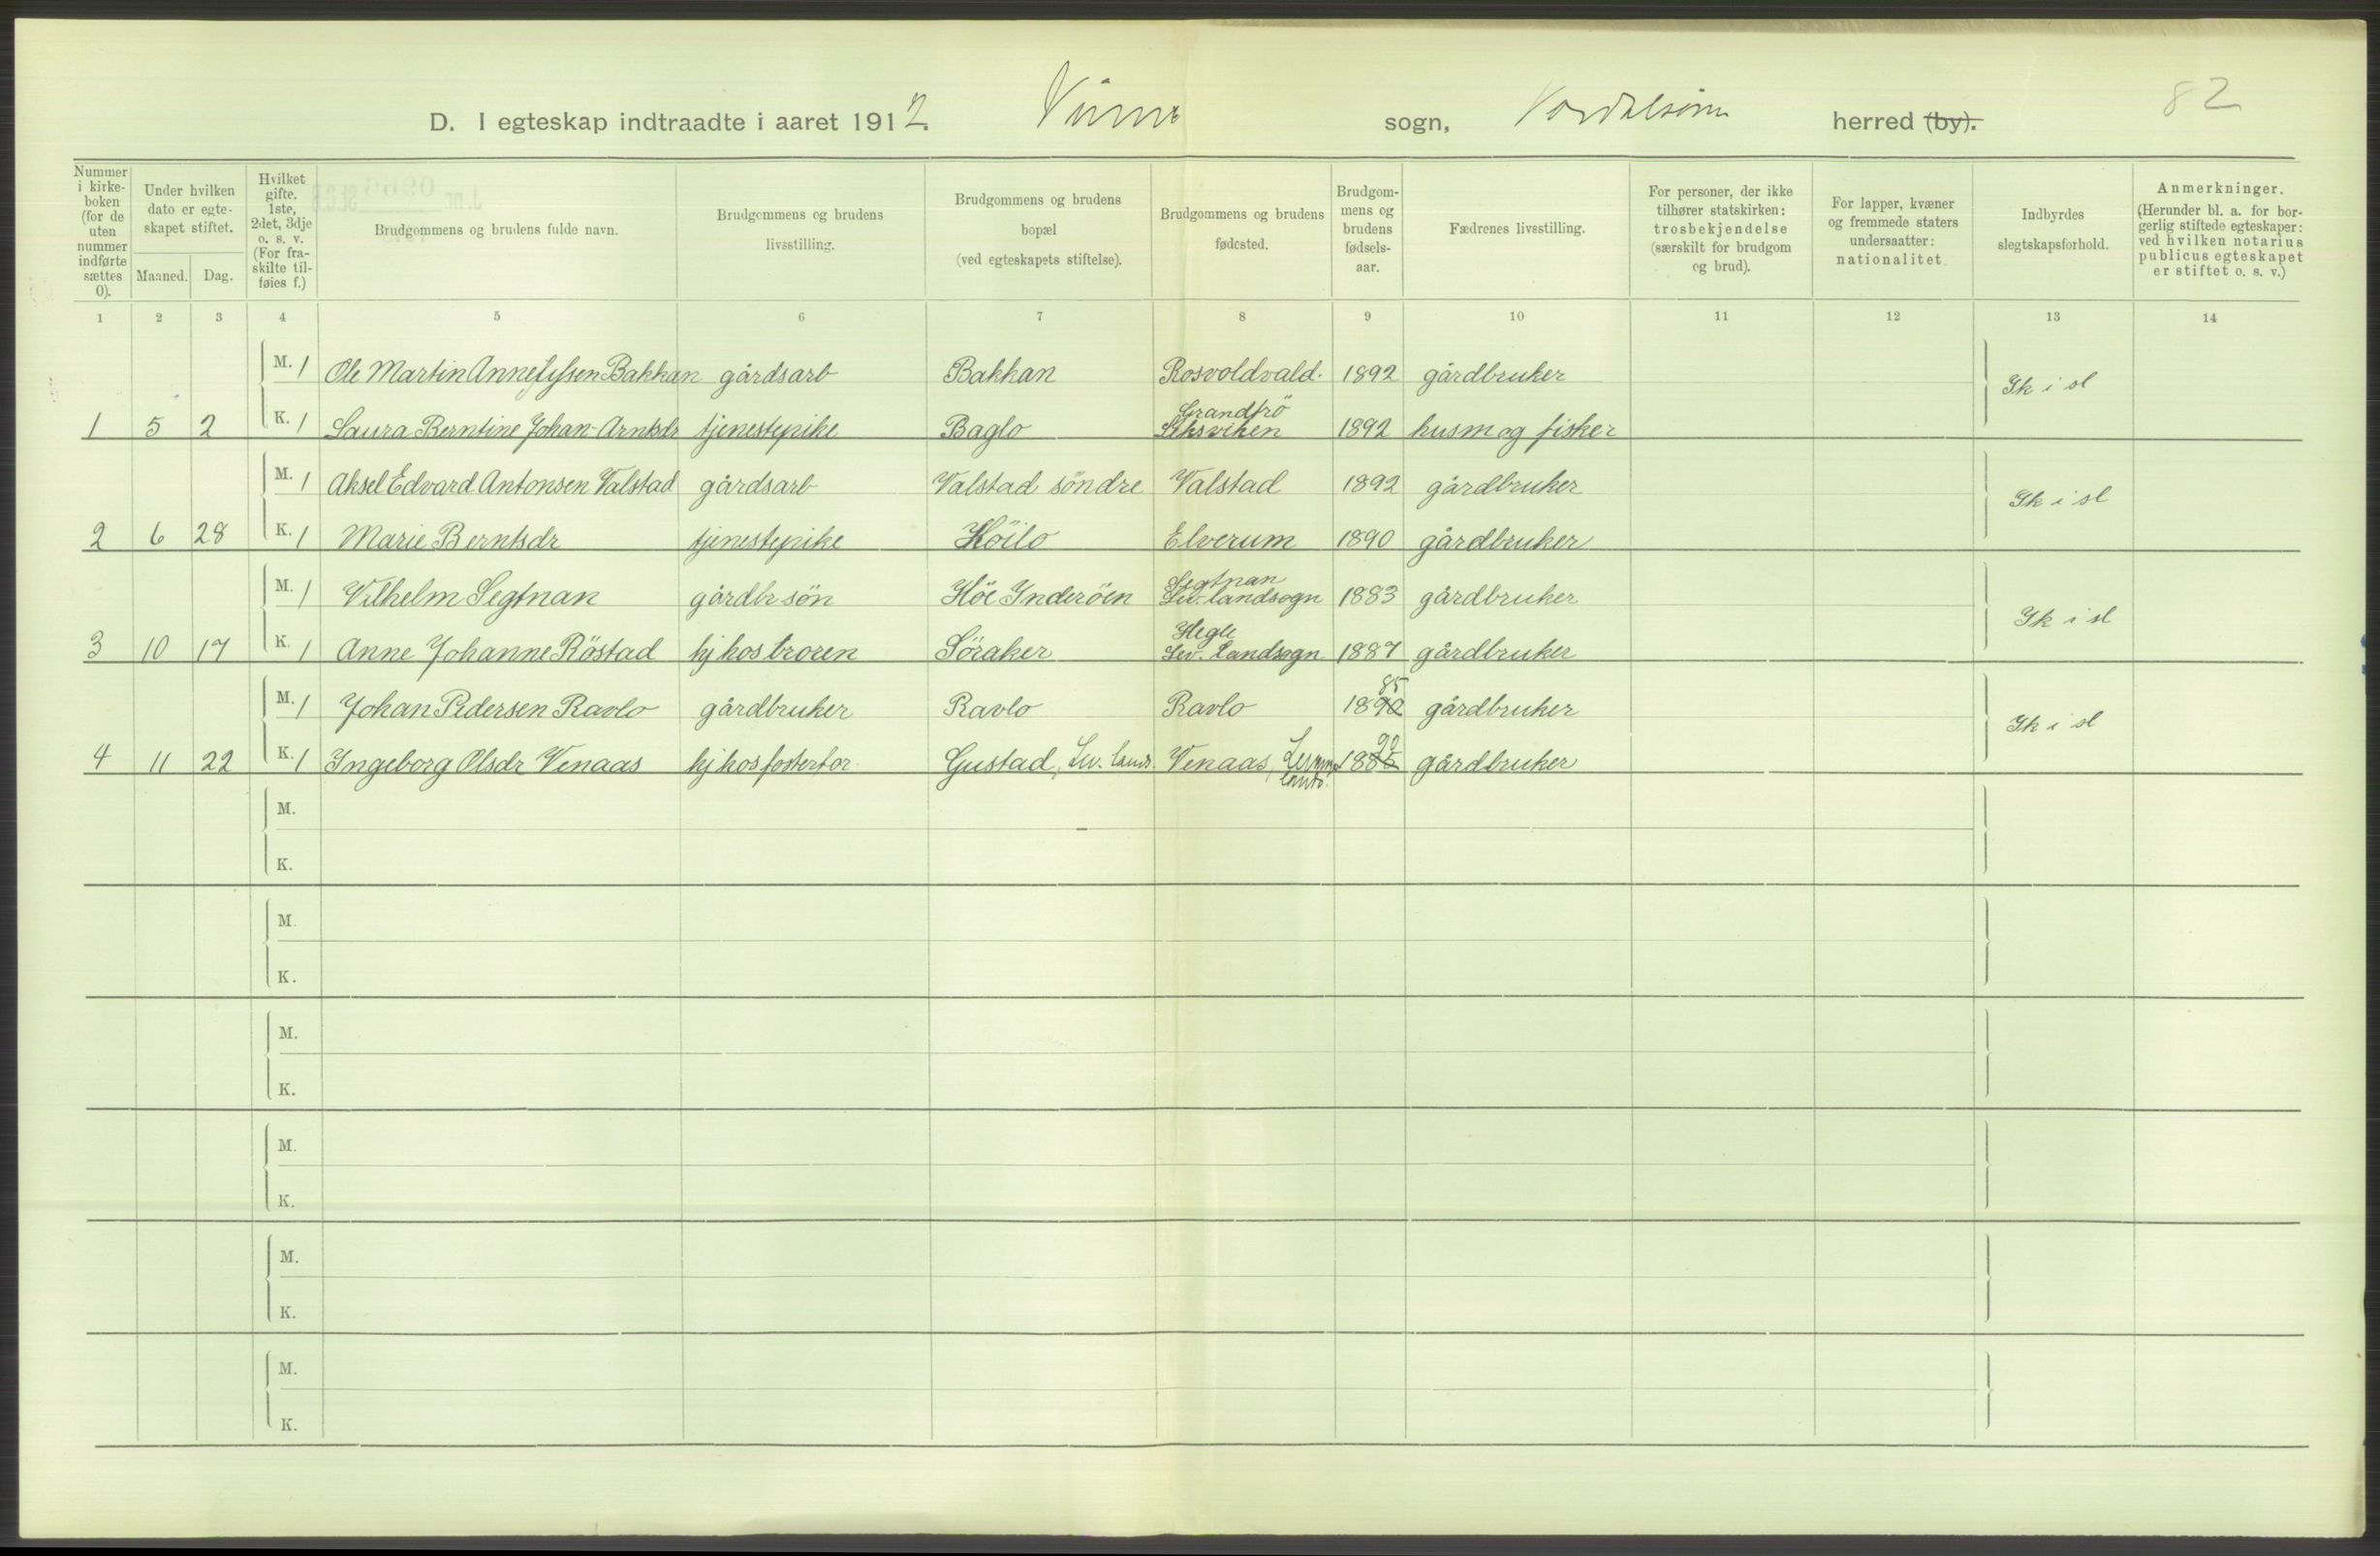 82
D. I egteskap indtraadte i aaret 1912. Vinne sogn, Værdalsøren herred (by).
Nummer i kirke-boken (for de uten nummer indførte sættes 0).
Under hvilken dato er egte-skapet stiftet.
Maaned. Dag.
Hvilket gifte. 1ste, 2det, 3dje o. s. v. (For fra-skilte til-føies f.)
Brudgommens og brudens fulde navn.
Brudgommens og brudens livsstilling.
Brudgommens og brudens bopæl (ved egteskapets stiftelse).
Brudgommens og brudens fødested.
Brudgom-mens og brudens fødsels-aar.
Fædrenes livsstilling.
For personer, der ikke tilhører statskirken: trosbekjendelse (særskilt for brudgom og brud).
For lapper, kvæner og fremmede staters undersaatter: nationalitet.
Indbyrdes slegtskapsforhold.
Anmerkninger. (Herunder bl. a. for bor-gerlig stiftede egteskaper: ved hvilken notarius publicus egteskapet er stiftet o. s. v.)
1 2 3 4 5 6 7 8 9 10 11 12 13 14
M. 1 Ole Martin Bakkan gårdsarb Bakkan Rosvoldvald. 1892 gårdbruker
Ik i sl
Grandfrö
1 5 2 K. 1 Laura Berntine Johan-Arntsdr tjenestepike Baglo Leksviken 1892 husm og fisker
M. 1 Aksel Edvard Antonsen Valstad gårdsarb Valstad söndre Valstad 1892 gårdbruker
Ik i sl
2 6 28 K. 1 Marie Berntsdr tjenestepike Höilo Elverum 1890 gårdbruker
Segtnan
M. 1 Vilhelm Segtnan gårdbr sön Höe Inderöen Lev. landsogn 1883 gårdbruker
Ik i sl
Hegle
3 10 17 K. 1 Anne Johanne Röstad hj hos broren Söraker Lev. landsogn 1887 gårdbruker
85
M. 1 Johan Pedersen Ravlo gårdbruker Ravlo Ravlo 1890 gårdbruker
Ik i sl
90
4 11 22 K. 1 Ingeborg Olsdr Venaas hj hos fosterfor. Gustad, Lev. lands. Venaas, 1885 gårdbruker
lands.
M.
K.
M.
K.
M.
K.
M.
K.
M.
K.
M.
K.